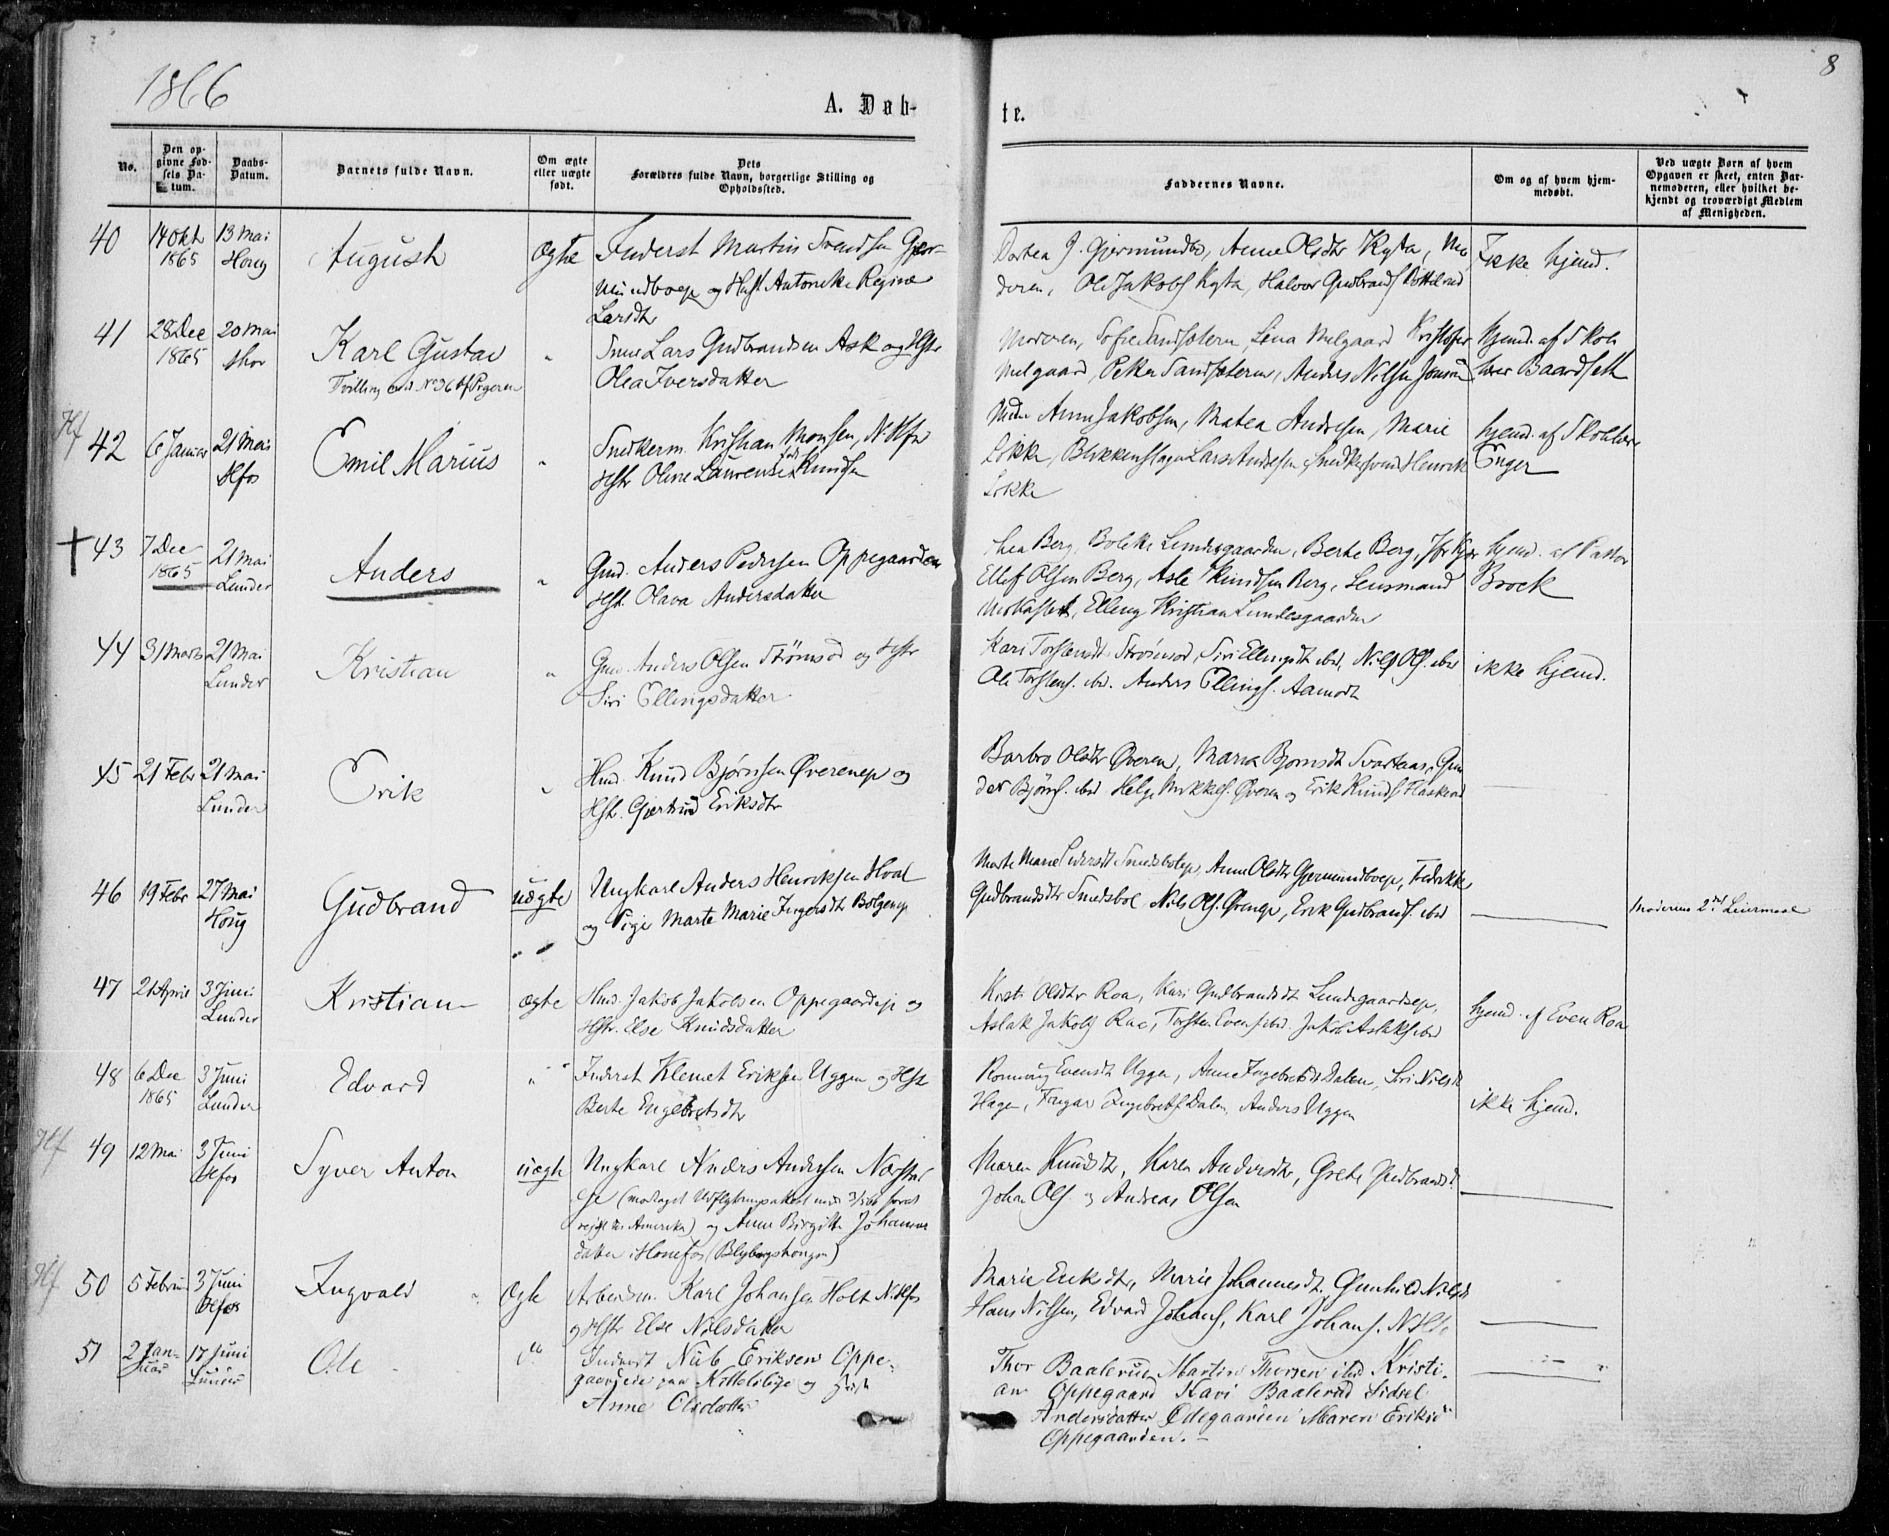 1866
8
A. Døb-
te.
No.
Den op-
givne Fød-
sels Da-
tum.
Daabs-
Datum.
Barnets fulde Navn.
Om ægte
eller uægte
født.
Dets
Forældres fulde Navn, borgerlige Stilling og
Opholdssted.
Faddernes Navne.
Om og af hvem hjem-
medøbt.
Ved uægte Børn af hvem
Opgaven er skeet, enten Bar-
nemoderen, eller hvilket be-
kjendt og troværdigt Medlem
af Menigheden.
40
14 Okt
1865
13 Mai
Houg
August
ægte
Inderst Martin Svendsen Gjer-
mundboep og Hust. Antonette Regine
Larsdtr
Dortea J. Gjermundbo, Anne Olsdtr Kyta, Mo
deren, Ole Jakobs Kyta, Halvor Gudbrands
Ikke hjemd.
41
28 Dec
1865
20 Mai
Karl Gustav
Tvilling med No 36 bl. Pigerne
"
Lars Gudbrandsen Ask og Hstr
Olea Iversdatter
Moderen, Sofie, Lina Melgaard Kristofer
Melgaard, Peter, Anders Nilsen
hjemd. af Skole
lærer Baardseth
Hf
42
6 Januar
21 Mai
Hfos
Emil Marius
"
Snedkerm. Kristian Monsen, N Hfos
Hstr Oline Laurense Knudsen
Anne Jakobsen, Matea Andresen, Marie
Løkke, Blikkenslager Lars Andresen, Snedkersvend Henrik
Løkke
hjemd. af Skolelærer
Enger
† 43
7 Dec
1865
21 Mai
Lunder
Anders
"
Gmd. Anders Pedersen Oppegaarden
Hstr. Olava Andersdatter
Thea Berg, Bolette Lundesgaarden, Berte Berg,
Ellef Olsen Berg, Asle Knudsen Berg, Lensmand
Elling Kristian Lundesgaarden
hjemd. af Pastor
Brock
44
31 Marts
21 Mai
Lunder
Kristian
"
Gmd. Anders Olsen Strømsod og Hstr
Siri Ellingsdatter
Kari Torstensdt. Strømsod, Siri Ellingsdt ibd, Nils Ols. ibd
Ole Torstens. ibd. Anders Ellings. Aamodt
ikke hjemd.
45
21 Febr
21 Mai
Lunder
Erik
"
Hmd. Knud Bjørnsen Øverenep og
Hstr. Gjertrud Eriksdtr
Barbro Olsdtr Øveren, Maria Bjørnsdt Svartaas, Gun
der Bjørns. ibd Helge Mikkels. Øveren og Erik Knuds.
46
19 Febr
27 Mai
Houg
Gudbrand
uægte
Ungkarl Anders Henriksen Hval
og Pige Marte Marie Ingersdt
Marte Marie Pedersdt Smedsbølep, Anne Olsdtr Gjermundboep, Fredrikke
Gudbrandsdtr Smedsbøl Nils Ols., Erik Gudbrands. ibd
Moderens 2det Leiermaal
47
21 April
3 Juni
Lunder
Kristian
ægte
Hmd. Jakob Jakobsen Oppegaardeje og
Hstr. Else Knudsdatter
Kirsti Olsdtr Roa, Kari Gudbrandsdt Lundesgaardsep,
Aslak Jakobs. Roe, Torsten Evens. ibd. Jakob Aslaks. ibd
hjemd. af Even Roa
48
6 Dec
1865
3 Juni
Lunder
Edvard
"
Inderst Klemet Eriksen Uggen og Hstr
Berte Engebretsdtr
Ronnaug Evensdt Uggen, Anne Engebretsdt Dalen, Siri Nilsdt
Hagen, Torgar Engebrets. Dalen, Anders Uggen
ikke hjemd.
Hf
49
12 Mai
3 Juni
Hfos
Syver Anton
uægte
Ungkarl Anders Andersen
(modtaget Udflytningsattest
reist til Amerika) og Anne Birgitte Johannes
datter i Hønefos,
Maren Knudsdtr, Karen Andersdtr, Grete Gudbrandsd.
Johan Ols. og Andreas Olsen
Hf
50
5 Februar
3 Juni
Hfos
Ingvald
Ægte
Arbeidsm. Karl Johansen Holt N. Hfos
og Hstr Else Nilsdatter
Marie Eriksdtr, Marie Johannesdt. Gunhild Nilsdt
Hans Nilsen, Edvard Johans., Karl Johans.
51
2 Jan-
uar
17 Juni
Lunder
Ole
Inderst Nils Eriksen Oppe-
gaardeie paa og Hustr
Anne Olsdatter
Thor Baalerud Martin Thorsen ibid Kristi-
an Oppegaard Kari Baalerud Sidsel
Andersdatter Ødegaarden Maren Eriksdr
Oppegaarden.